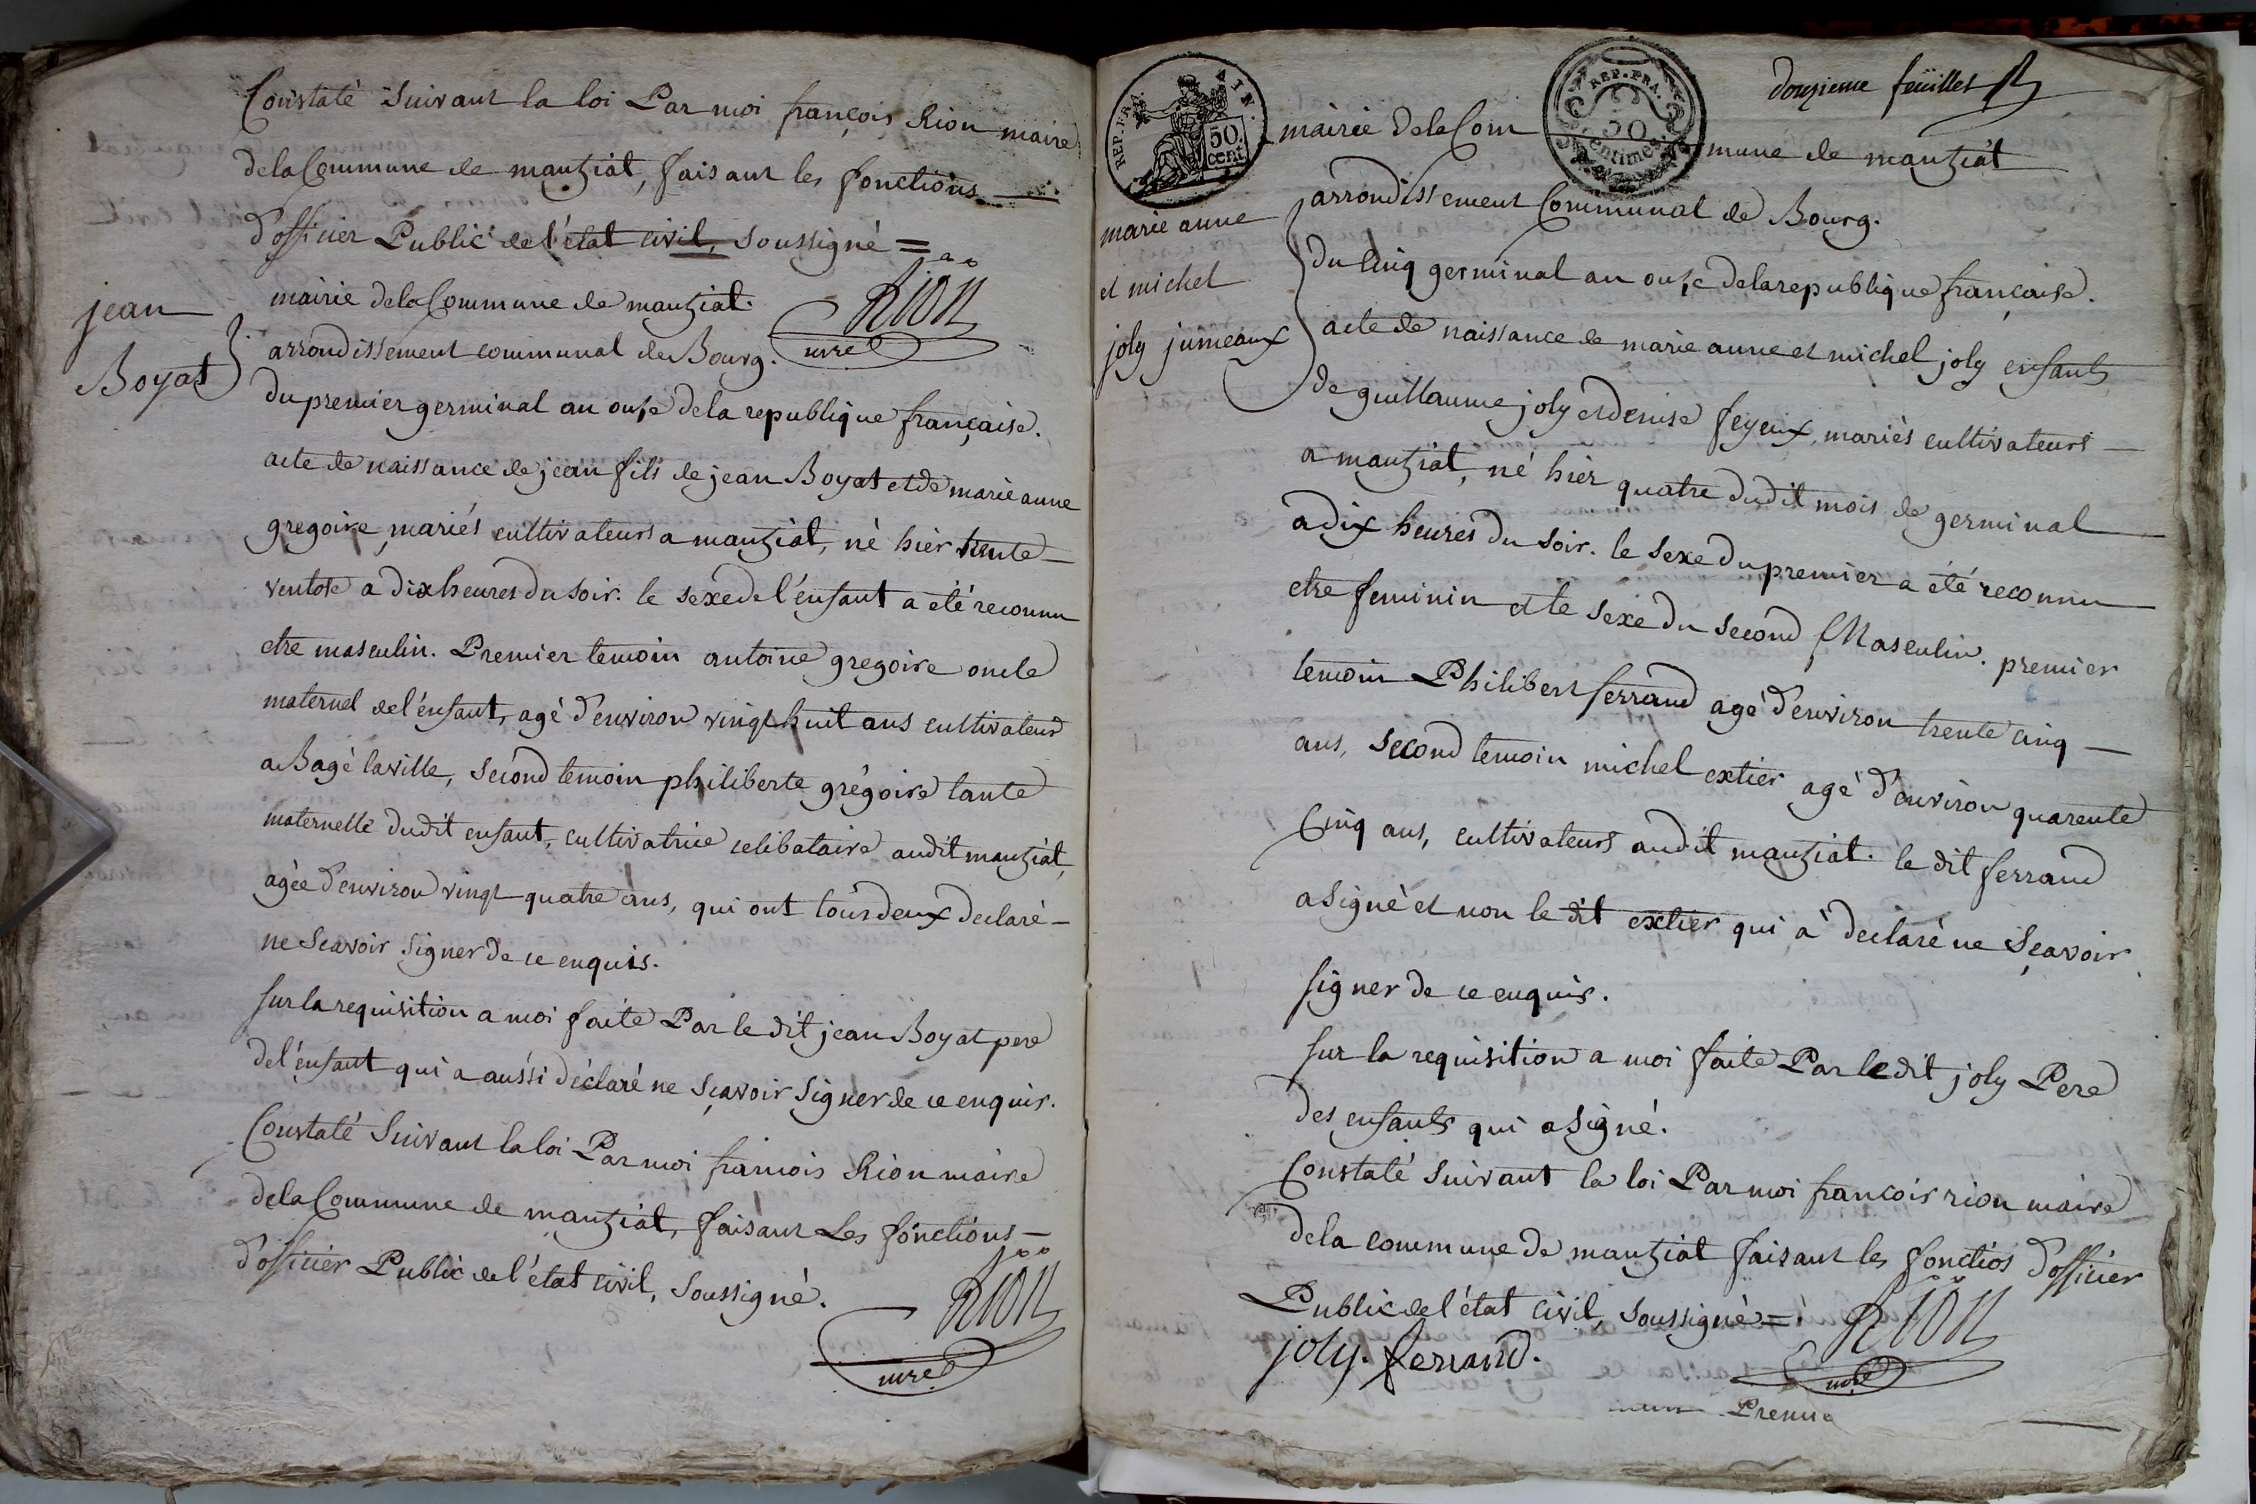 Constaté suivant la loi Par moi françois Rion maire
de la Commune de manziat, faisant les fonctions
d'officier Public de l'état civil, soussigné =
Rion
mre
jean
Boyat
mairie de la Commune de manziat.
arrondissement communal de Bourg.
du premier germinal an onze de la republique française.
acte de naissance de jean fils de jean Boyat et de marie anne
gregoire, mariés cultivateurs a manziat, né hier trente
ventose a dix heures du soir. le sexe de l'enfant a été reconnu
etre masculin. Premier temoin antoine gregoire oncle
maternel de l'enfant, agé d'environ vingt huit ans cultivateur
a Bagé laville, second temoin philiberte grégoire tante
maternelle dudit enfant, cultivatrice celibataire audit manziat,
agée d'environ vingt quatre ans, qui ont tous deux declaré
ne scavoir signer de ce enquis.
sur la requisition a moi faite Par le dit jean Boyat pere
de l'enfant qui a aussi déclaré ne sçavoir signer de ce enquis.
Constaté suivant la loi Par moi francois Rion maire
de la Commune de manziat, faisant Les fonctions
d'officier Public de l'état civil, soussigné.
Rion
mre
REP. FRA. AIN.
50 cent
REP. FRA.
50 centimes
douzieme feuillet
mairie de la Com mune de manziat
arrondissement Communal de Bourg.
marie anne
et michel
joly jumeaux
du cinq germinal an onze de la republique française.
acte de naissance de marie anne et michel joly enfants
de guillaume joly et denise feyeux, mariés cultivateurs
a manziat, né hier quatre dudit mois de germinal
a dix heures du soir. le sexe du premier a été reconnu
etre feminin et le sexe du second Masculin. premier
temoin Philibert ferrand agé d'environ trente cinq
ans, second temoin michel extier agé d'environ quarente
Cinq ans, cultivateurs audit manziat. le dit ferrand
a signé et non le dit extier qui a declaré ne sçavoir
signer de ce enquis.
sur la requisition a moi faite Par le dit joly Pere
des enfants qui a signé.
Constaté suivant la loi Par moi francois rion maire
de la commune de manziat faisant les fonctios d'officier
Public de l'état civil, soussigné =
Rion
mre
joly. ferrand.
Premie